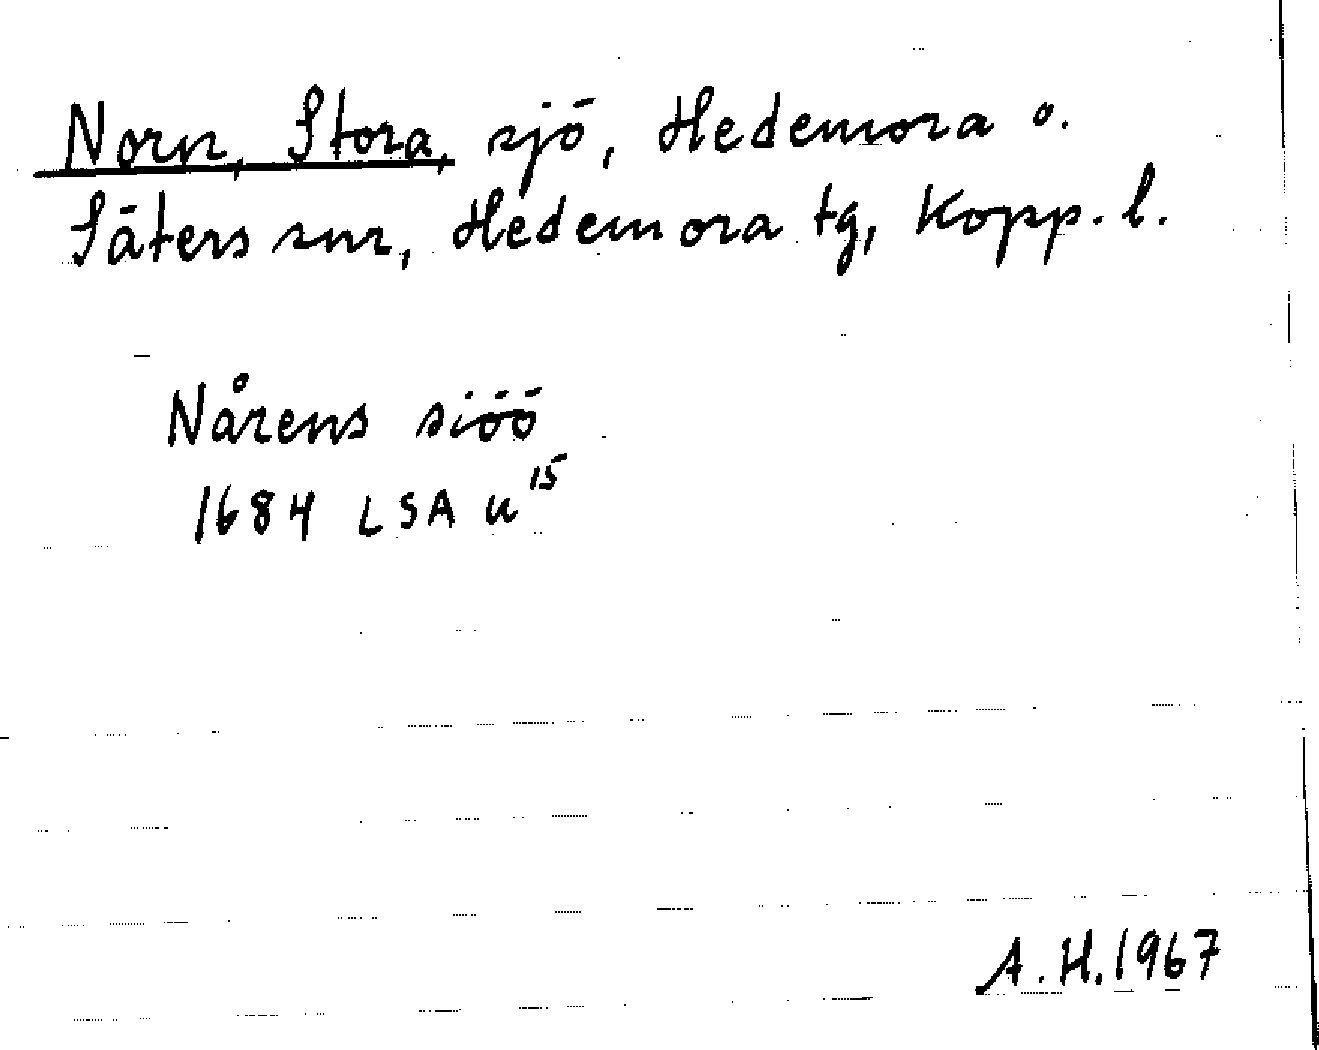 Norn, Stora, sjö, Hedemora o.
Säters snr, Hedemora tg, Kopp. l.
Nårens siöö
1684 LSA u 15
A.H. 1967